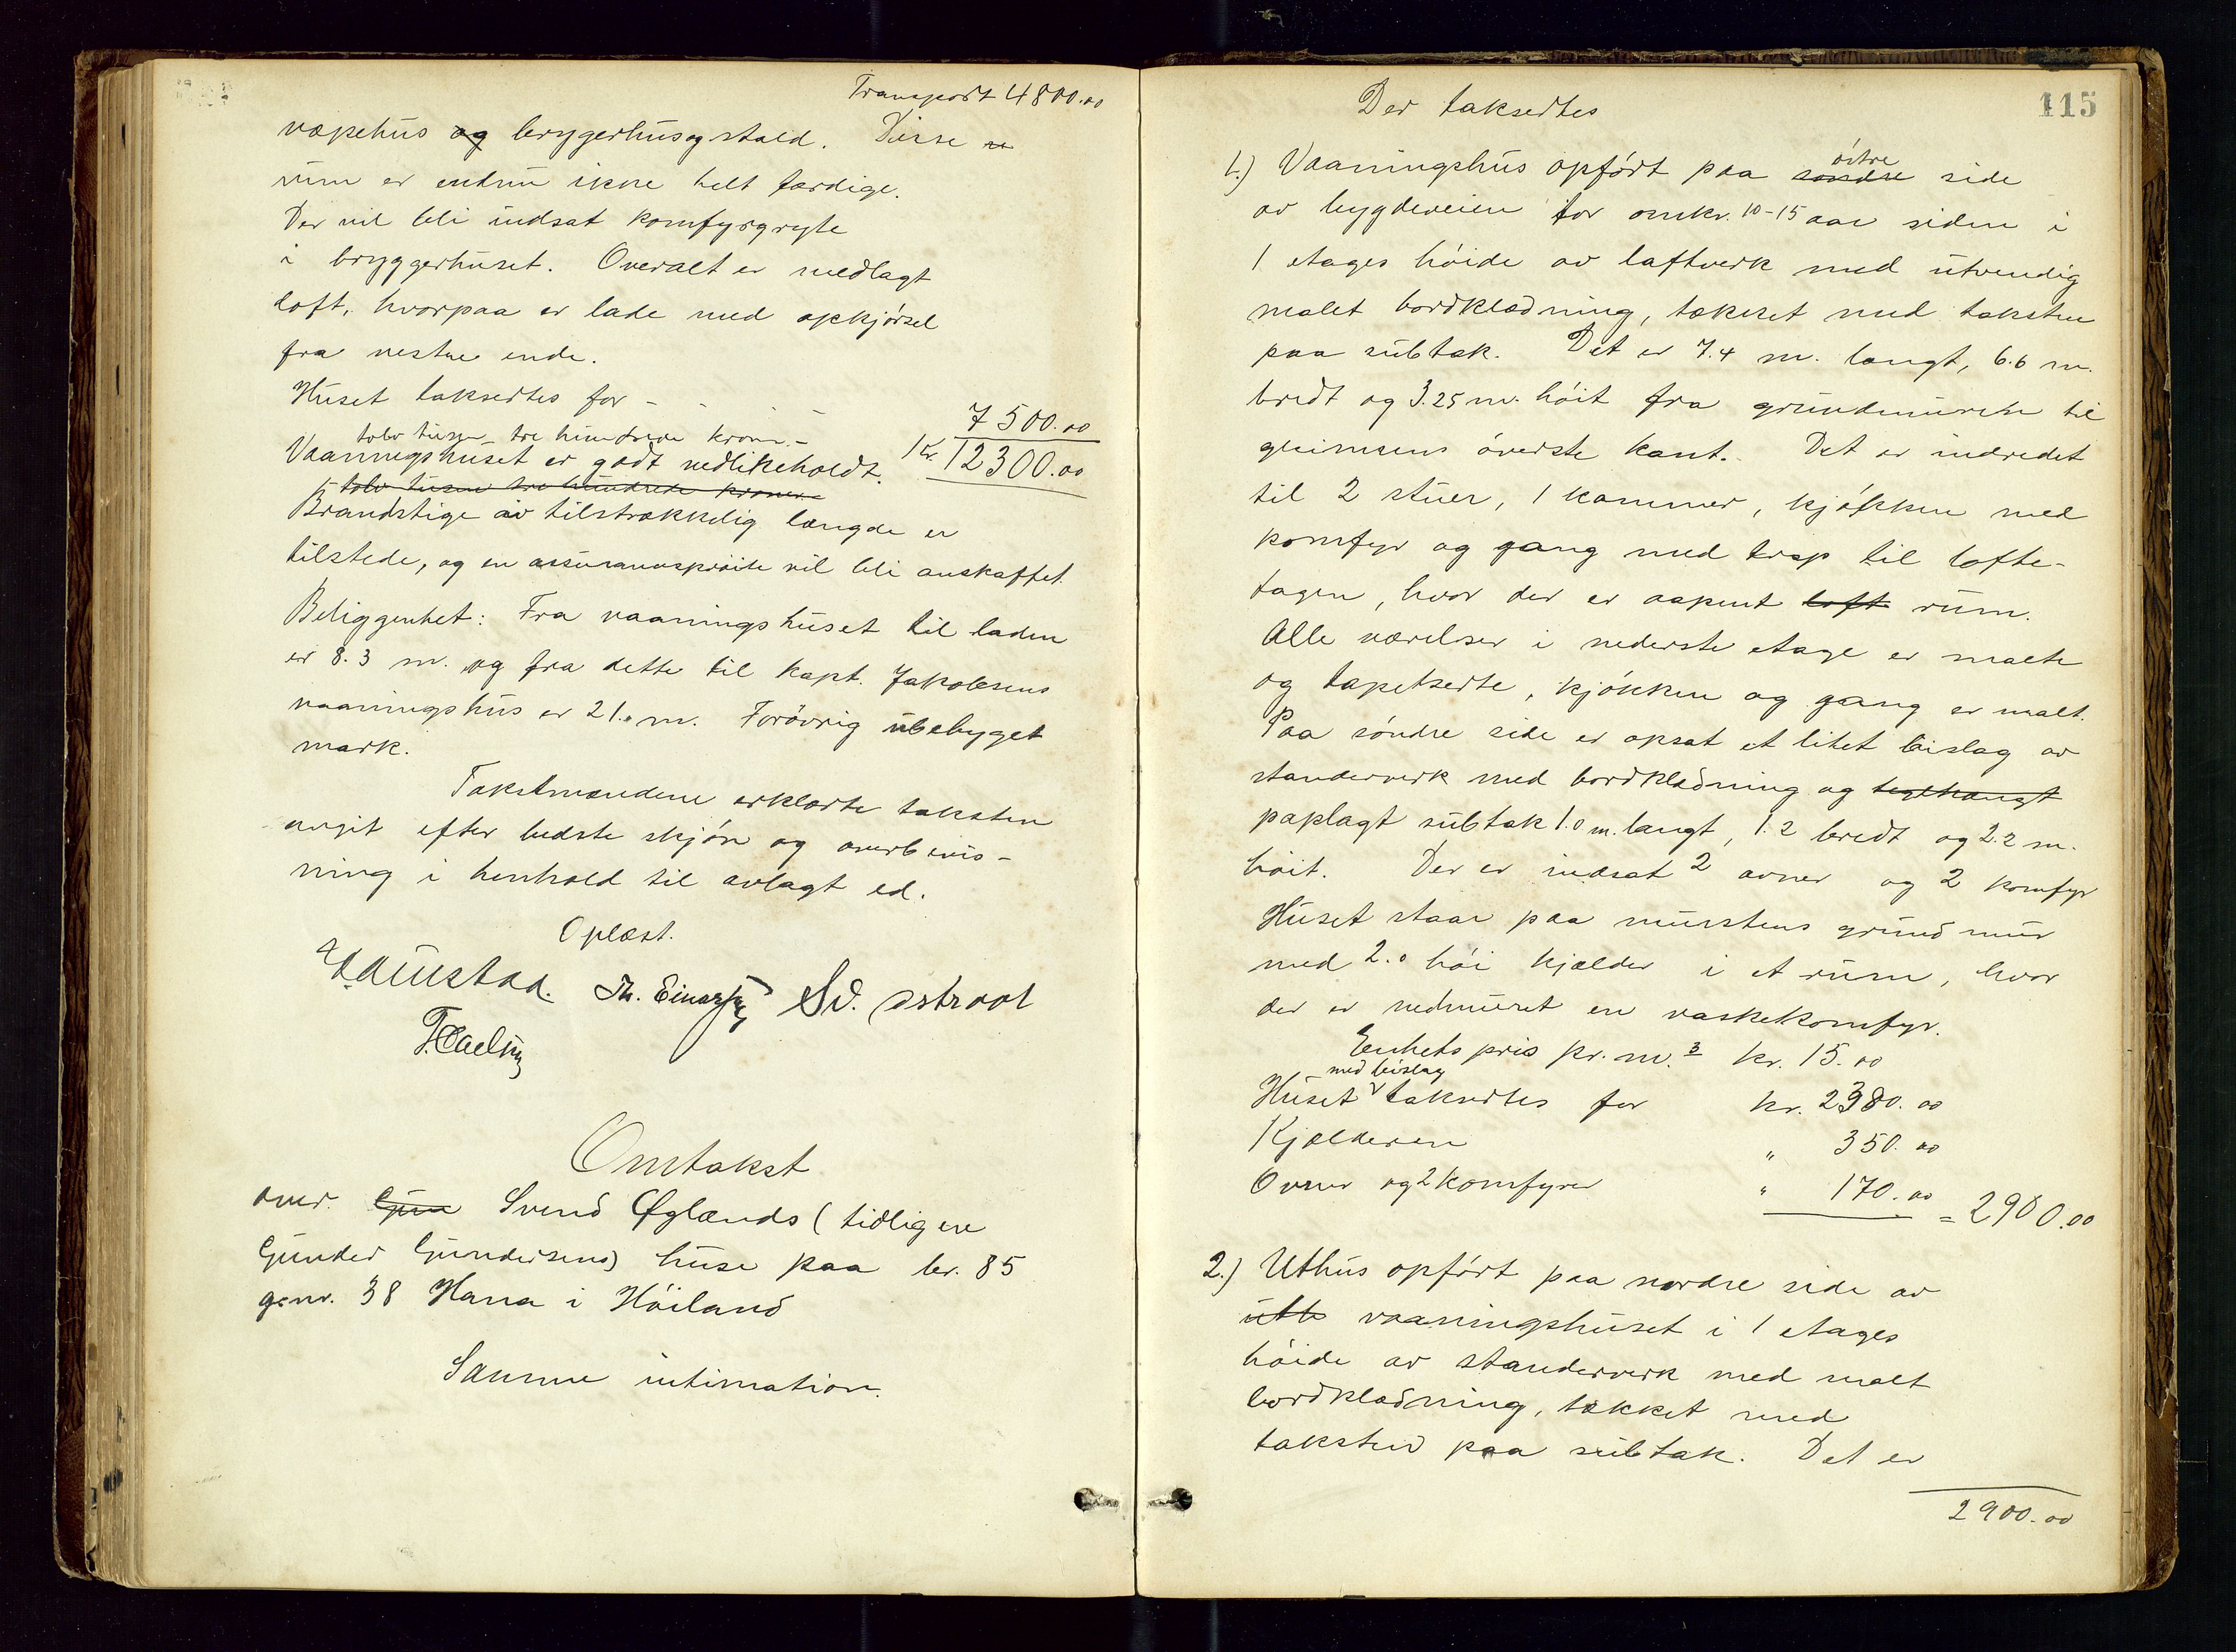 Transport 4800.00
væpehus og bryggerhus og stald. Disse
rum er endnu ikke helt færdige.
Der vil bli indsat komfyrgryte
i bryggerhuset. Overalt er nedlagt
loft, hvorpaa er lade med opkjørsel
fra vestre ende.
Huset takseres for - - - - 7500.00
tolv tusen tre hundrede kroner - Kr. 12300.00
Vaaningshuset er godt vedlikeholdt.
tolv tusen tre hundrede kroner
Brandstige av tilstrækkelig længde er
tilstede, og en assurancesprøite vil bli anskaffet.
Beliggenhet: Fra vaaningshuset til laden
er 8.3 m. og fra dette til kapt. Jakobsens
vaaningshus er 21.0 m. Forøvrig ubebygget
mark.
Takstmændene erklærte taksten
avgit efter bedste skjøn og overbevis-
ning i henhold til avlagt ed.
Oplæst.
Th. Einarsen Sv. Østraat
Omtakst
over Gun Svend Øglænds (tidligere
Gunder Gundersens) huse paa br. 85
g.nr. 38 Hana i Høiland
Samme intimation.
115
Der takseredes
1.) Vaaningshus opført paa søndre østre side
av bygdeveien for omkr. 10-15 aar siden i
1 etages høide av laftverk med utvendig
malet bordklædning, tækket med taksten
paa subtak. Det er 7.4 m. langt, 6.6 m.
bredt og 3.25 m. høit fra grundmuren til
gesimsens øverste kant. Det er indredet
til 2 stuer, 1 kammer, kjøkken med
komfyr og gang med trap til lofte-
tagen, hvor der er aapent loft rum.
Alle værelser i nederste etage er malte
og tapetserte, kjøkken og gang er malt.
Paa søndre side er opsat et litet bislag av
standerverk med bordklædning og teglhængt
paplagt subtak 1.0 m. langt, 1.2 bredt og 2.2 m.
høit. Der er indsat 2 ovner og 2 komfyr
Huset staar paa murstens grundmur
med 2.0 høi kjælder i et rum, hvor
der er nedmuret en vaskekomfyr.
Enhets pris pr. m.3 kr. 15.00
Huset med bislag taksertes for kr. 2380.00
Kjælderen " 350.00
Ovner og 2 komfyrer " 170.00 = 2900.00
2.) Uthus opført paa nordre side av
uth vaaningshuset i 1 etages
høide av standerverk med malt
bordklædning, tækket med
taksten paa subtak. Det er
2900.00